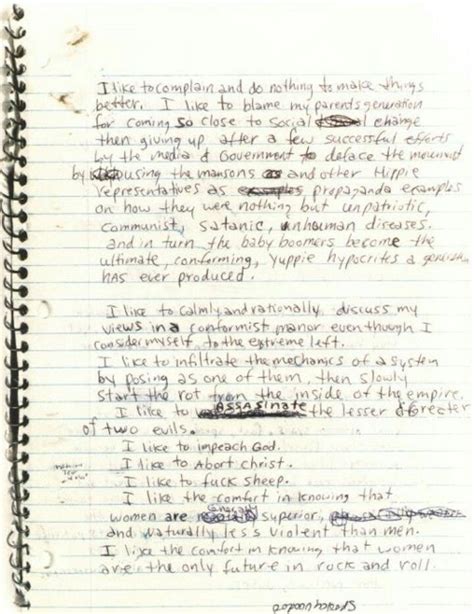 I like to complain and do nothing to make things
better. I like to blame my parents generation
for coming so close to social change
then giving up after a few successful efforts
by the media & Government to deface the movement
by using the mansons and other Hippie
representatives as propaganda examples
on how they were nothing but unpatriotic,
communist, satanic, unhuman diseases.
and in turn the baby boomers became the
ultimate, conforming, yuppie hypocrites a generation
HAS ever produced.
I like to calmly and rationally discuss my
views in a conformist manor even though I
consider myself to the extreme left.
I like to infiltrate the mechanics of a system
by posing as one of them, then slowly
start the rot from the inside of the empire.
I like to ASSASINATE the lesser & greater
of two evils.
I like to impeach God.
I like to Abort christ.
I like to fuck sheep.
I like the comfort in knowing that
women are generally superior,
and naturally less violent than men.
I like the comfort in knowing that women
are the only future in rock and roll.